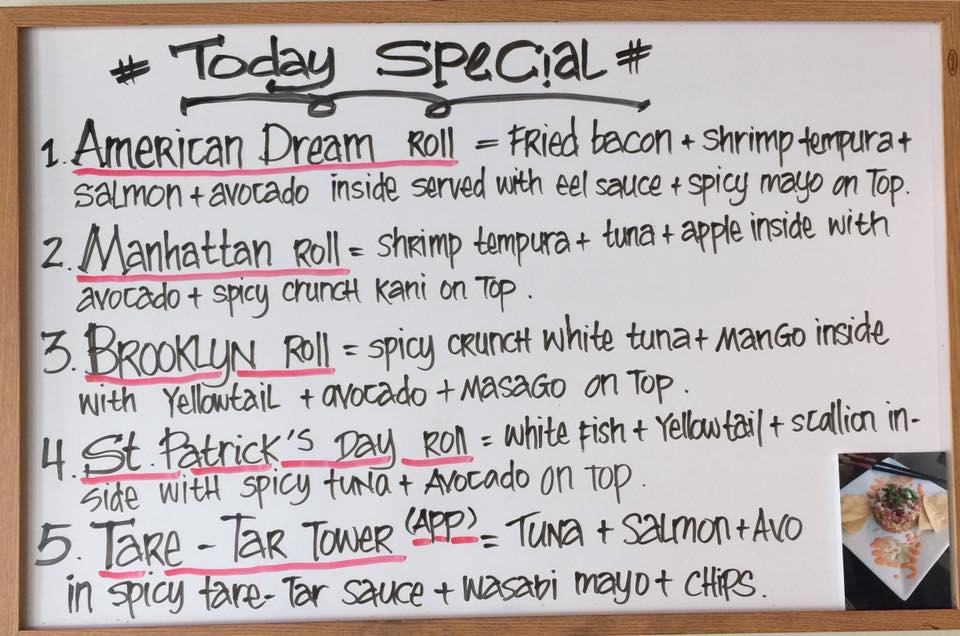 # Today Special #
1. American Dream Roll = Fried bacon + shrimp tempura +
salmon + avocado inside served with eel sauce + spicy mayo on Top.
2. Manhattan Roll = shrimp tempura + tuna + apple inside with
avocado + spicy crunch kani on Top.
3. Brooklyn Roll = spicy crunch white tuna + Mango inside
with Yellowtail + avocado + masago on Top.
4. St. Patrick's Day Roll = white fish + Yellowtail + scallion in-
side with spicy tuna + Avocado on Top.
5. Tare - Tar Tower (App) = Tuna + Salmon + Avo
in spicy tare - Tar sauce + wasabi mayo + chips.